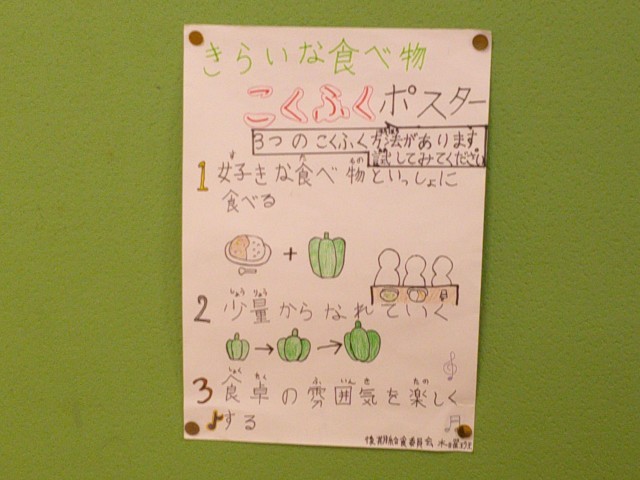 きらいな食べ物
こくふくポスター
3つのこくふく方法があります。
試してみてください
1 好きな食べ物といっしょに
食べる
+
2 少量からなれていく
3 食卓の雰囲気を楽しく
する
後期給食委員会